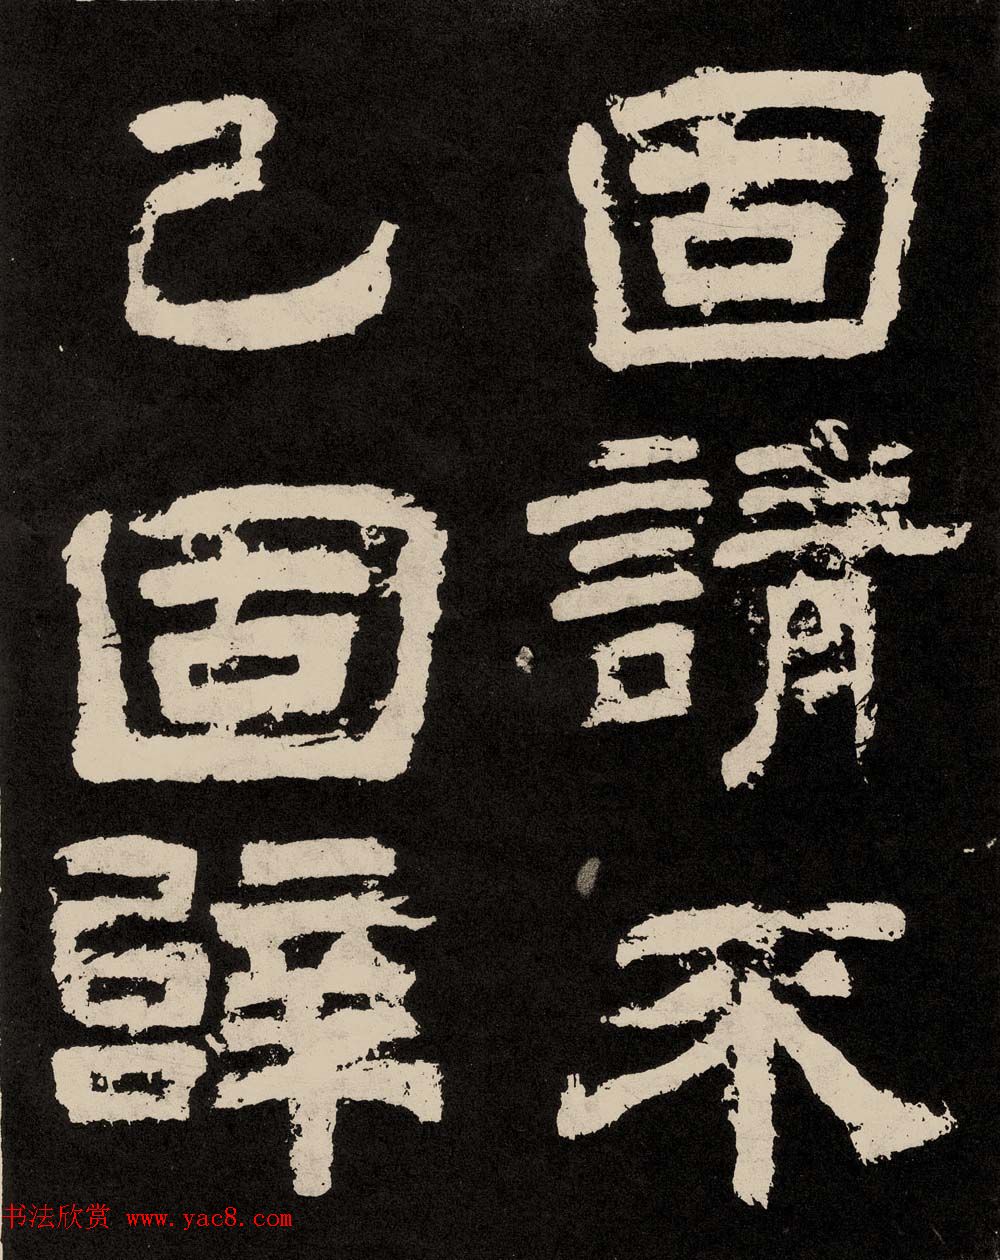 固請不
已固辭
书法欣赏 www.yac8.com